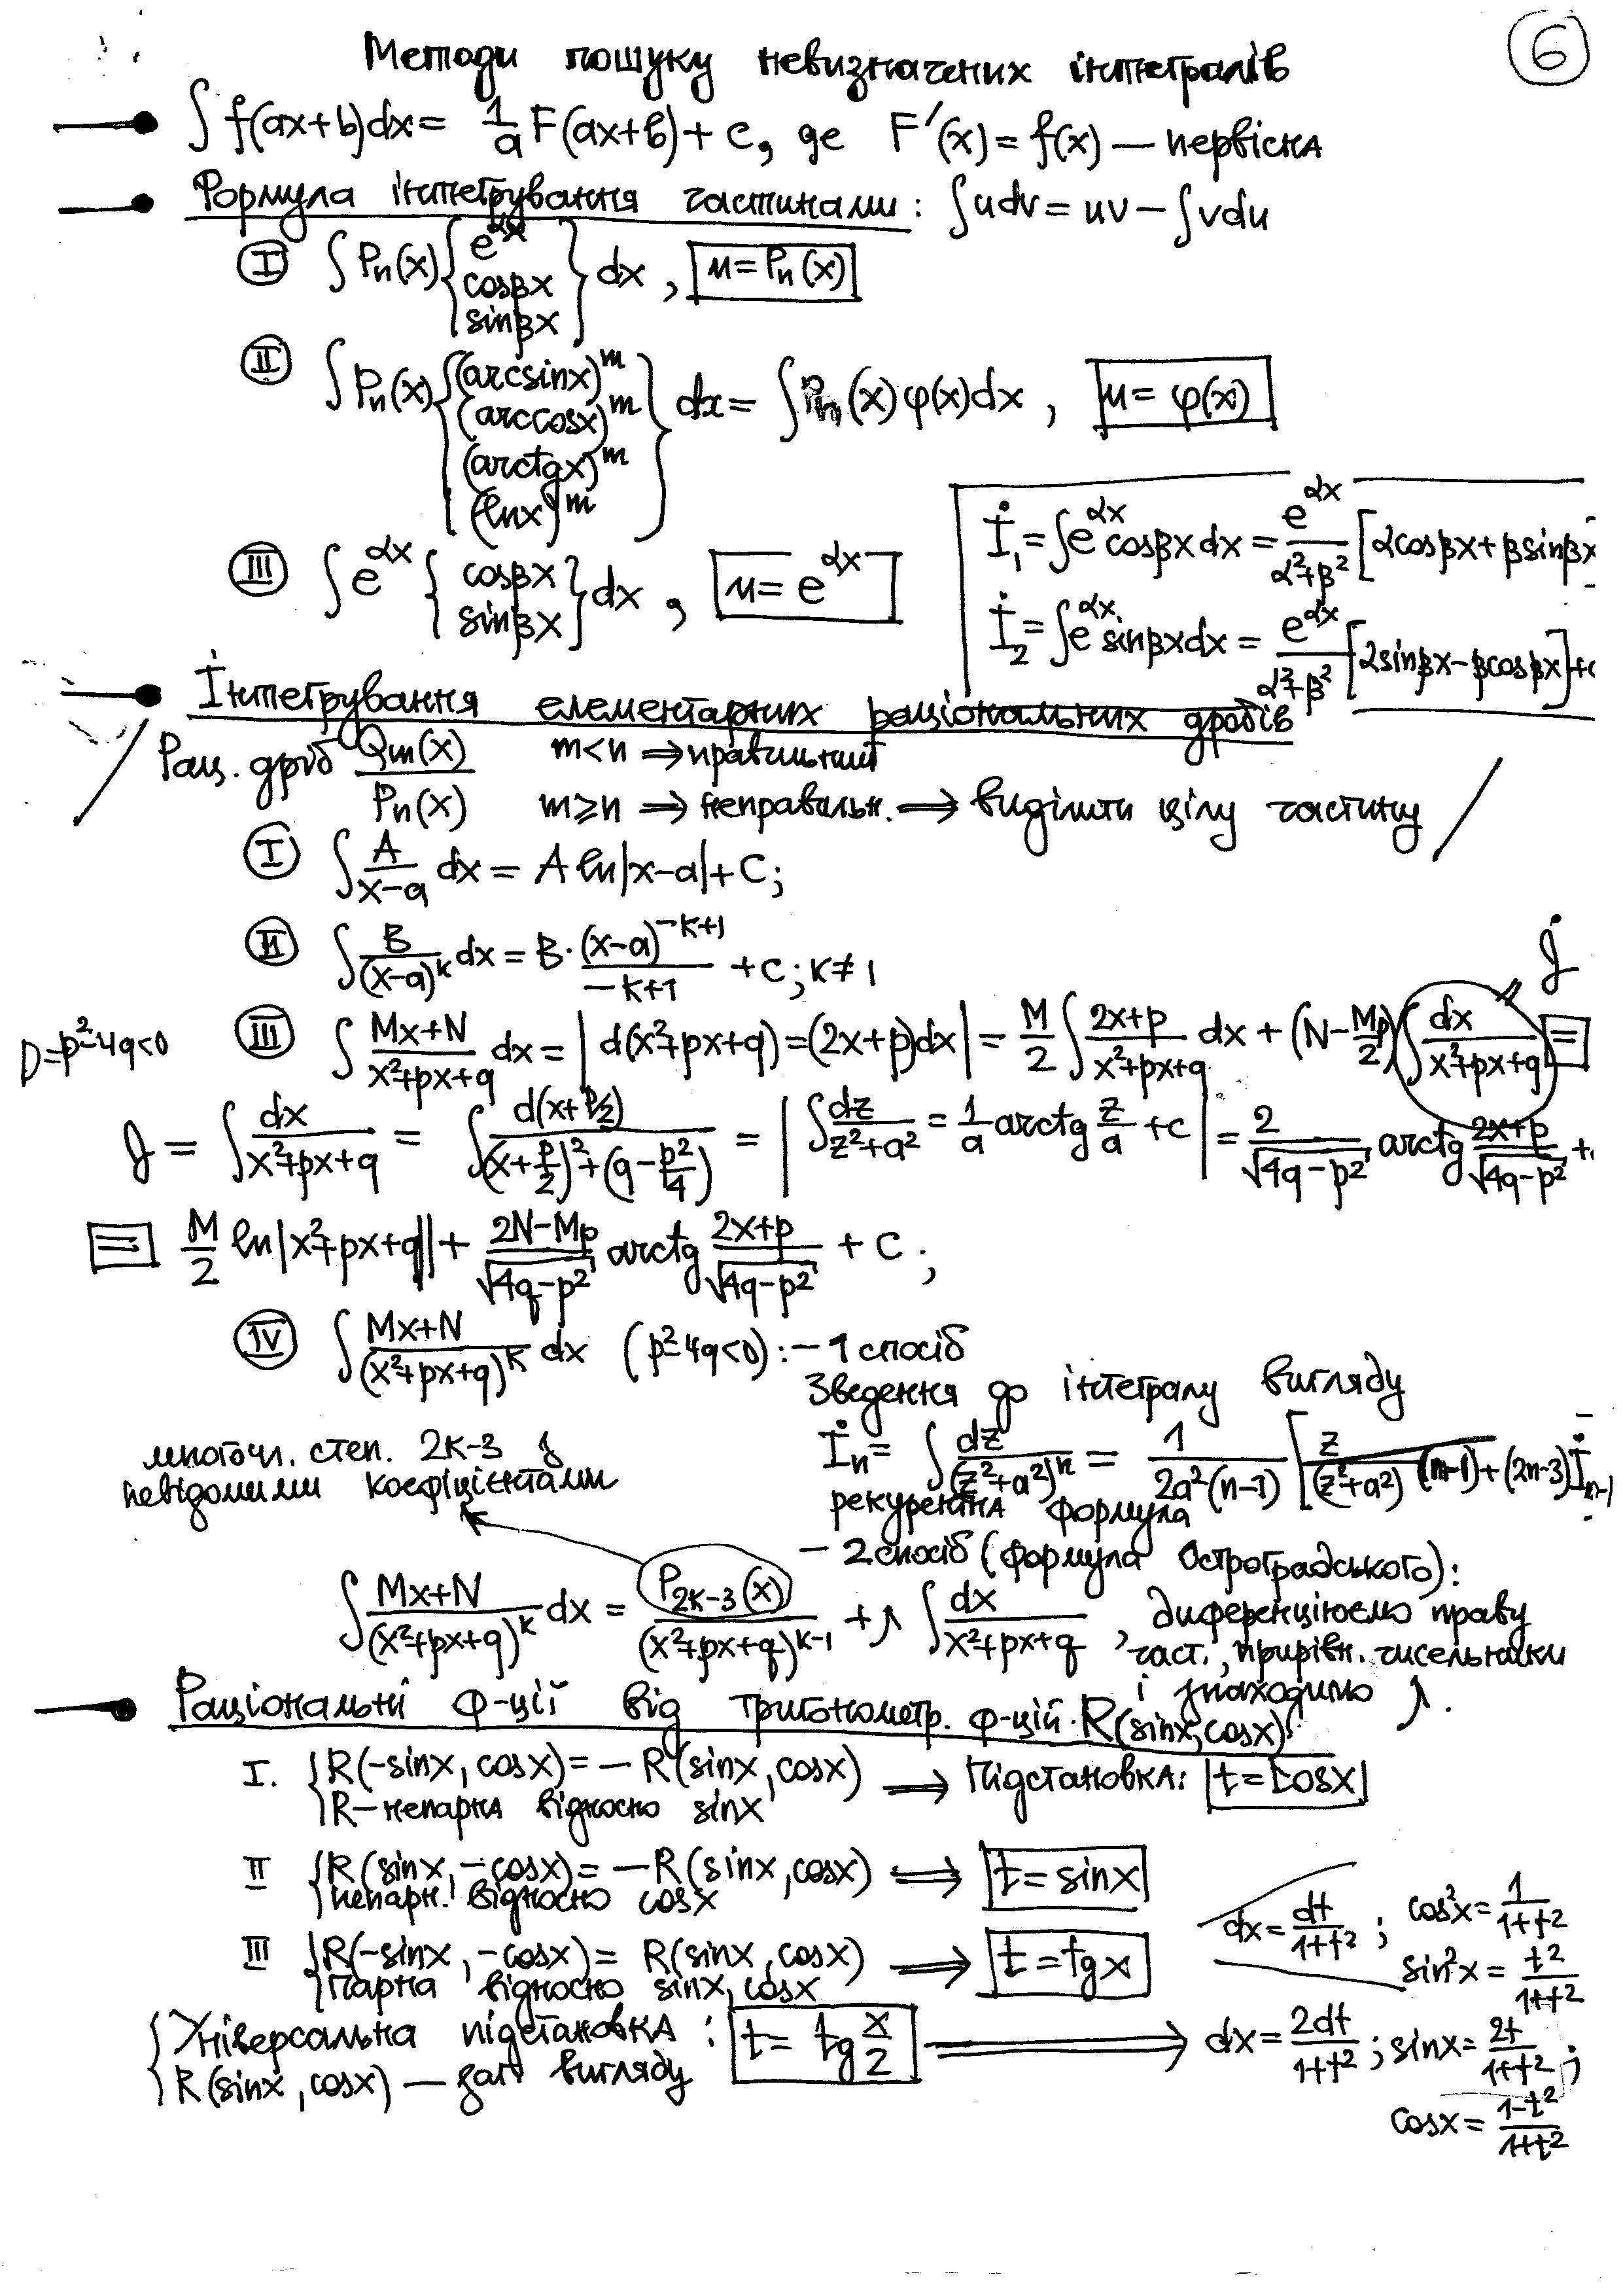 6
Методи пошуку невизначених інтегралів
∫ f(ax+b)dx = 1/a F(ax+b) + C, де F′(x) = f(x) — первісна
Формула інтегрування частинами: ∫udv = uv − ∫vdu
Ⅰ ∫ Pn(x) { e^αx cosβx sinβx } dx, u = Pn(x)
Ⅱ ∫ Pn(x) { (arcsinx)^m (arccosx)^m (arctgx)^m (lnx)^m } dx = ∫ Pn(x) φ(x)dx, u = φ(x)
Ⅲ ∫ e^αx { cosβx sinβx } dx, u = e^αx
İ₁ = ∫e^αx cosβx dx = e^αx/(α²+β²) [αcosβx + βsinβx
İ₂ = ∫e^αx sinβx dx = e^αx/(α²+β²) [αsinβx − βcosβx] + c
Інтегрування елементарних раціональних дробів
Рац. дріб Qm(x)/Pn(x) m<n ⇒ правильний
m≥n ⇒ неправильн. ⇒ виділити цілу частину
Ⅰ ∫ A/(x−a) dx = A ln|x−a| + C;
Ⅱ ∫ B/(x−a)^k dx = B · (x−a)^(−k+1)/(−k+1) + C; k ≠ 1
D = p²−4q<0 Ⅲ ∫ (Mx+N)/(x²+px+q) dx = | d(x²+px+q) = (2x+p)dx | = M/2 ∫ (2x+p)/(x²+px+q) dx + (N − Mp/2) ∫ dx/(x²+px+q) = J =
J = ∫ dx/(x²+px+q) = ∫ d(x+p/2)/((x+p/2)²+(q−p²/4)) = | ∫ dz/(z²+a²) = 1/a arctg z/a + c | = 2/√(4q−p²) arctg (2x+p)/√(4q−p²) +
= M/2 ln|x²+px+q| + (2N−Mp)/√(4q−p²) arctg (2x+p)/√(4q−p²) + C;
Ⅳ ∫ (Mx+N)/(x²+px+q)^k dx (p²−4q<0): − 1 спосіб
Зведення до інтегралу вигляду
İn = ∫ dz/(z²+a²)^n = 1/(2a²(n−1)) [ z/(z²+a²)^(n−1) + (2n−3) İn−1 ]
рекурентна формула
многочл. степ. 2k−3 з
невідомими коефіцієнтами
− 2 спосіб (формула Остроградського):
∫ (Mx+N)/(x²+px+q)^k dx = P2k−3(x)/(x²+px+q)^(k−1) + λ ∫ dx/(x²+px+q), диференціюємо праву
част., прирівн. чисельники
і знаходимо λ.
Раціональні ф-ції від тригонометр. ф-цій. R(sinx, cosx)
I. { R(−sinx, cosx) = − R(sinx, cosx) ⇒ Підстановка: t = cosx
R−непарна відносно sinx
II { R(sinx, −cosx) = − R(sinx, cosx) ⇒ t = sinx
непарн. відносно cosx
III { R(−sinx, −cosx) = R(sinx, cosx) ⇒ t = tgx
парна відносно sinx, cosx
dx = dt/(1+t²); cos²x = 1/(1+t²)
sin²x = t²/(1+t²)
{ Універсальна підстановка: t = tg x/2 ⇒ dx = 2dt/(1+t²); sinx = 2t/(1+t²);
R(sinx, cosx) — заг. вигляду
cosx = (1−t²)/(1+t²)